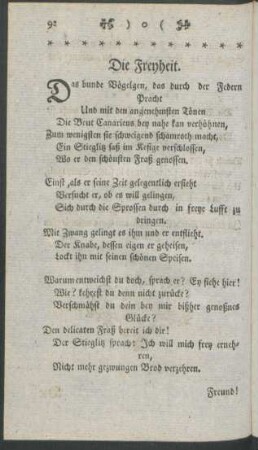 92 ) o (
Die Freyheit.
Das bunde Vögelgen, das durch der Federn
Pracht
Und mit den angenehmsten Tönen
Die Brut Canariens bey nahe kan verhöhnen,
Zum wenigsten sie schweigend schamroth macht,
Ein Stieglitz saß im Kefige verschlossen,
Wo er den schönsten Fraß genossen.
Einst als er seine Zeit gelegentlich ersieht
Versucht er, ob es will gelingen,
Sich durch die Sprossen durch in freye Lufft zu
dringen.
Mit Zwang gelingt es ihm und er entflieht.
Der Knabe, dessen eigen er geheisen,
Lockt ihn mit seinen schönen Speisen.
Warum entweichst du doch, sprach er? Ey siehe hier!
Wie? kehrest du denn nicht zurücke?
Verschmähst du dein bey mir bißher genoßnes
Glücke?
Den delicaten Fraß bereit ich dir!
Der Stieglitz sprach: Ich will mich frey erneh-
ren,
Nicht mehr gezwungen Brod verzehren.
Freund!